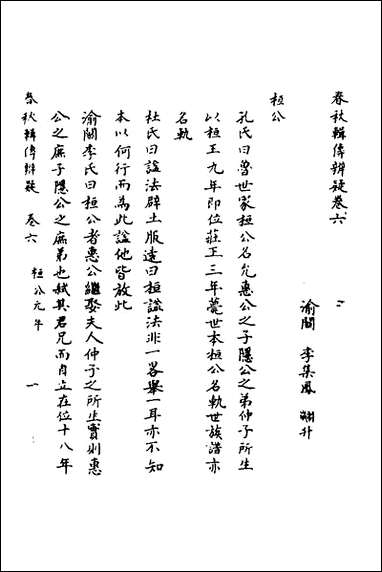 春秋輯傳辨疑卷六
渝關 李集鳳 翽升
桓公
孔氏曰魯世家桓公名允惠公之子隱公之弟仲子所生
以桓王九年即位莊王三年薨世本桓公名軌世族譜亦
名軌
杜氏曰諡法辟土服遠曰桓諡法非一畧舉一耳亦不知
本以何行而為此諡他皆放此
渝關李氏曰桓公者惠公繼娶夫人仲子之所生實則惠
公之庶子隱公之庶弟也弒其君兄而自立在位十八年
春秋輯傳辨疑 卷六 桓公元年 一